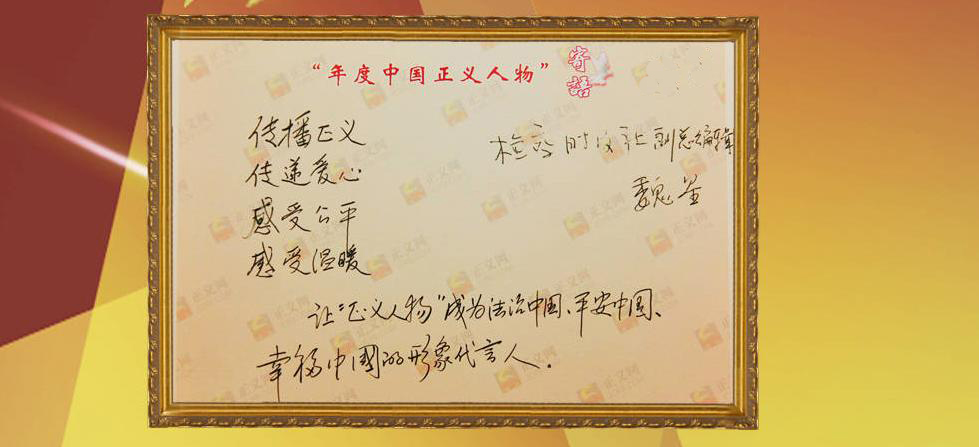 “年度中国正义人物”
寄语
传播正义
传递爱心
感受公平
感受温暖
让“正义人物”成为法治中国、平安中国、
幸福中國的形象代言人.
检察时文社副总编辑
魏星
正义网